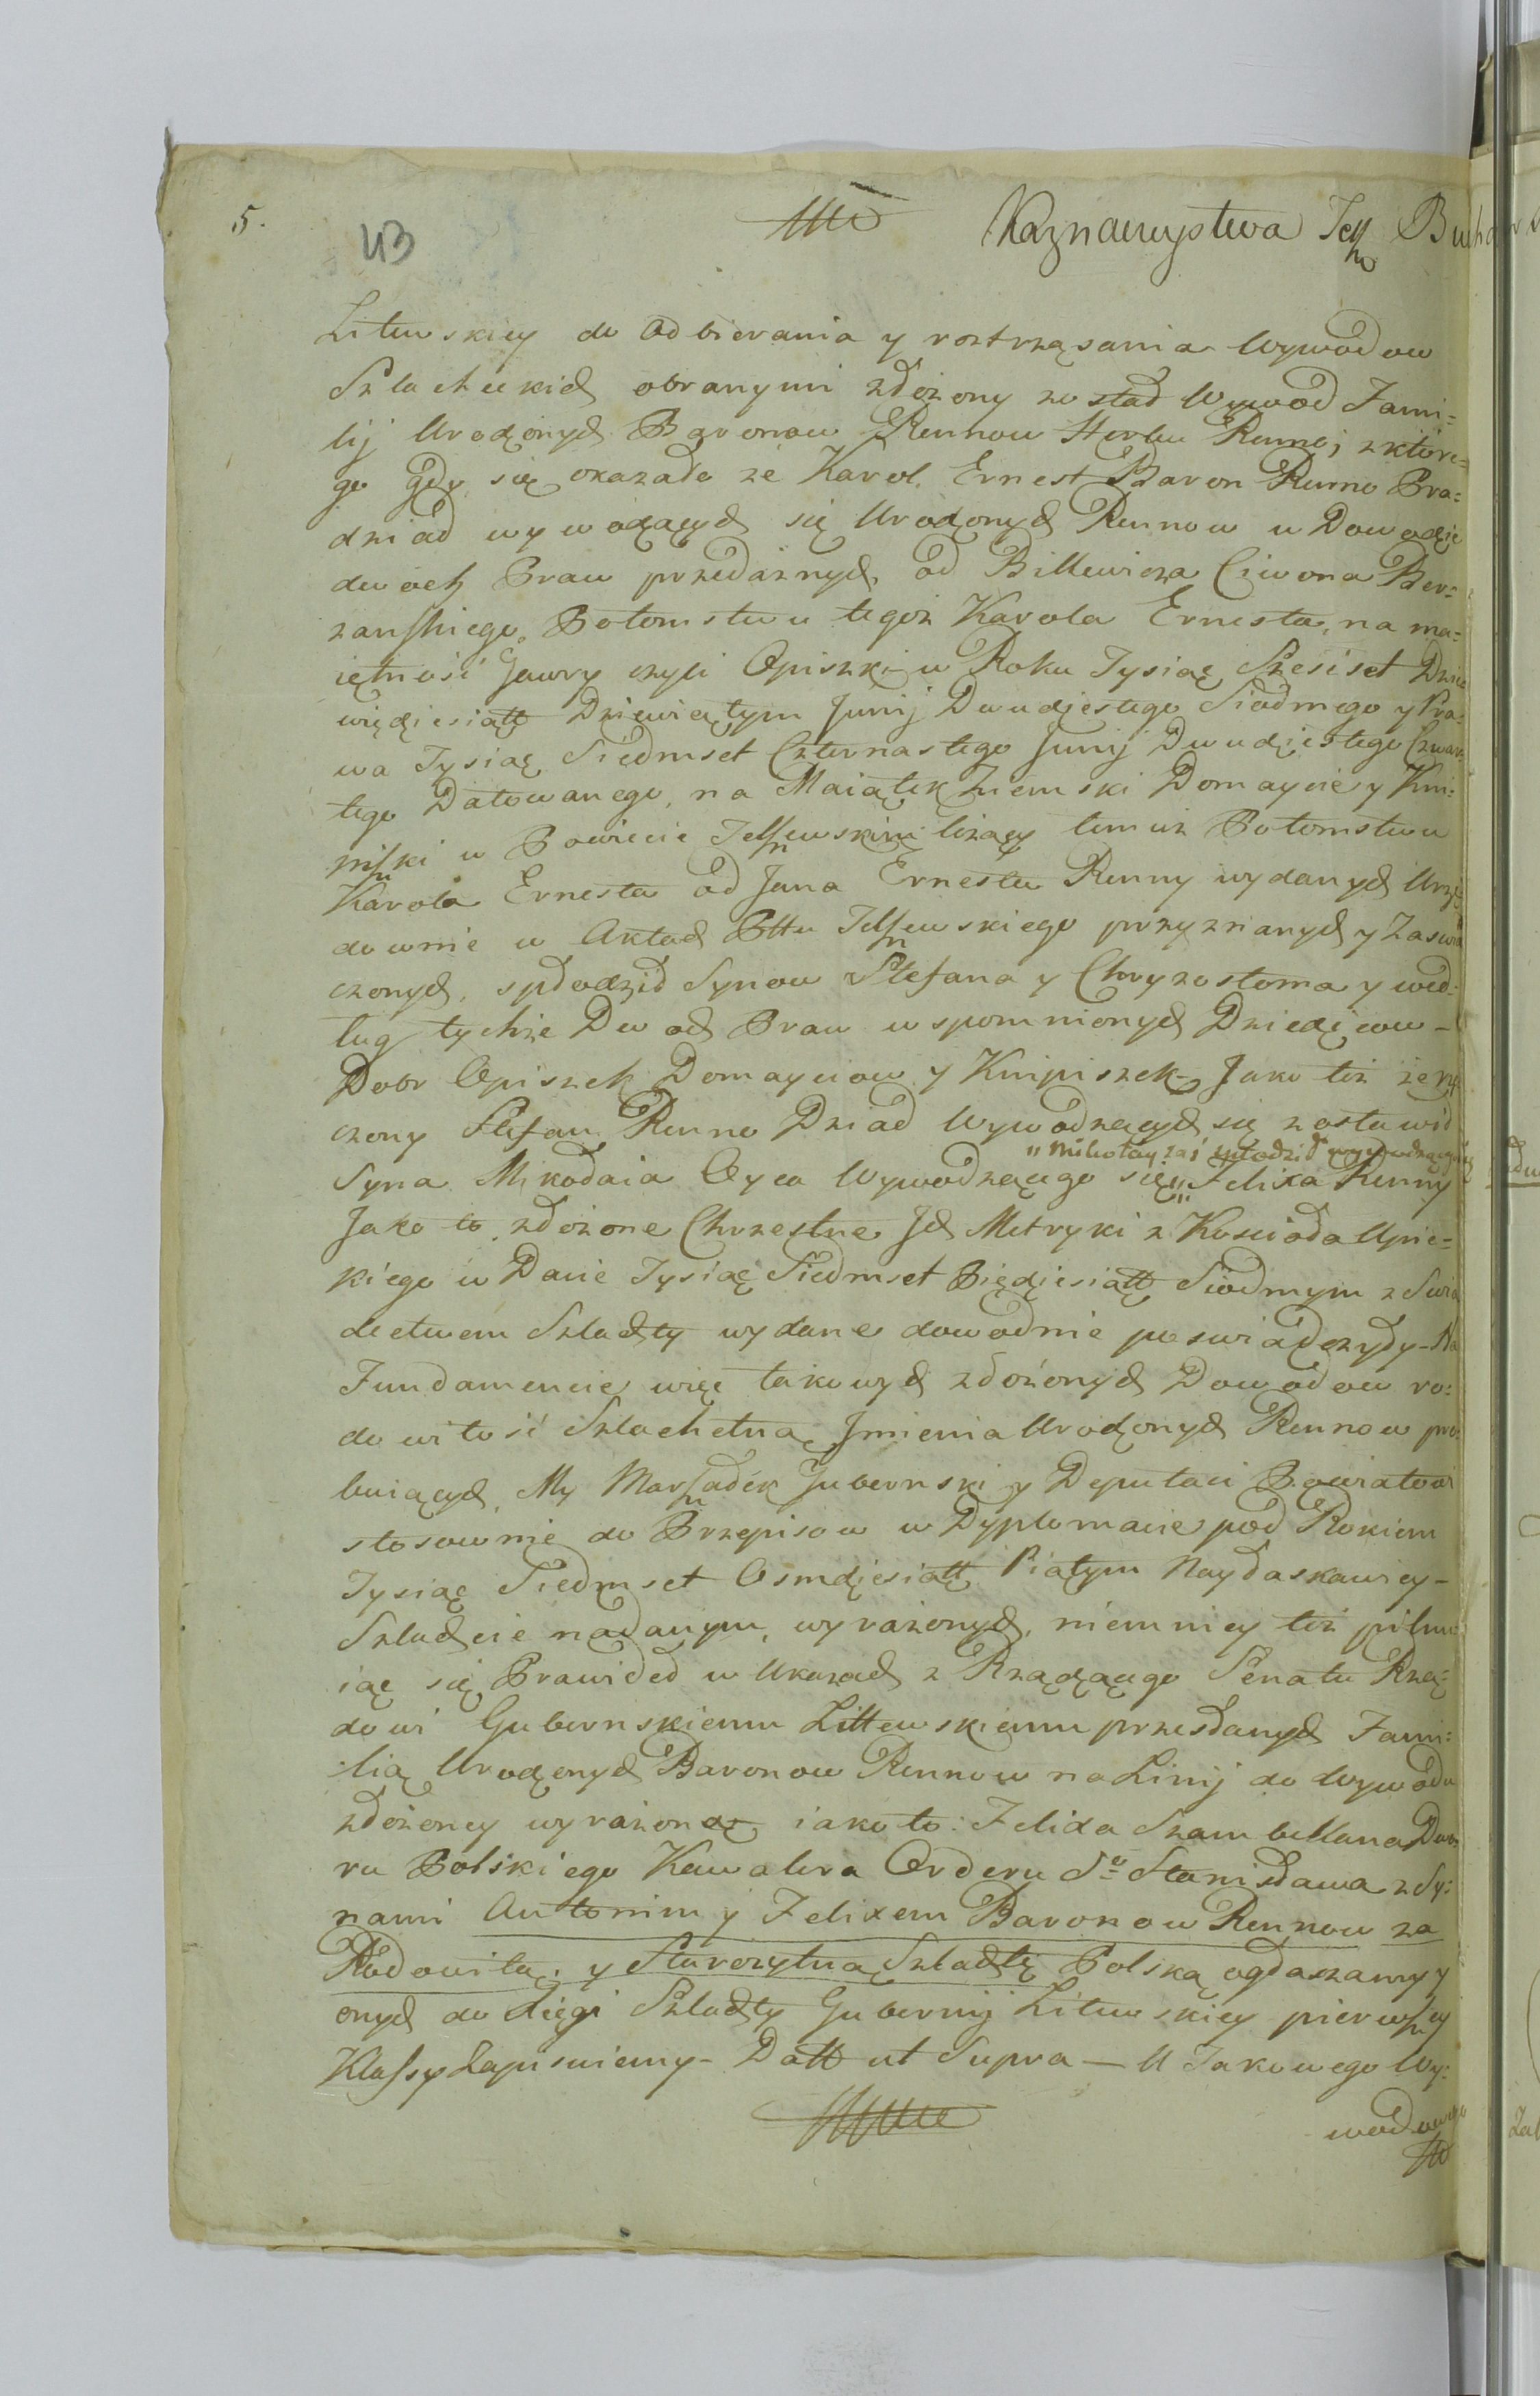 5.
43
Litewskiey do Odbierania y roztrząsania Wywodow
Szlacheckich obranymi złożony został Wywod Fami=
lij Urodzonych Baronow Rennow Herbu Renne; z które=
go gdy się okazało że Karol Ernest Baron Renne Pra=
dziad wywodzących się Urodzonych Rennow w Dowodzie
dwoch Praw przedażnych, od Billewicza Ciwona Ber=
żańskiego Potomstwu tegoż Karola Ernesta, na ma=
iętność Jawry czyli Opiszki w Roku Tysiąc Szesiset Dzie
więdziesiątt Dziewiątym Junij Dwudziestego Siodmego y Pra=
wa Tysiąc Siedmset Czternastego Junij Dwudziestego Czwar
tego Datowanego, na Maiątek Ziemski Domaycie y Kni=
piszki w Powiecie Telszewskim leżący temuż Potomstwu
Karola Ernesta od Jana Ernesta Renny wydanych Urzę
downie w Aktach Pttu Telszewskiego przyznanych y Zaswia
czonych, spłodził Synow Stefana y Chryzostoma y wed=
ług tychże Dwoch Praw wspomnionych Dziedzicow -
Dobr Opiszek Domayciow y Knipiszek - Jako też że rze
czony Stefan Renne Dziad Wywodzących się zostawił
"Mikołay zaś spłodził wywodzącego się
Syna Mikołaia Oyca Wywodzącego się" Felixa Renny
Jako to złożone Chrzestne Jch Metryki z Kościoła Upic=
kiego w Dacie Tysiąc Siedmset Pięćdziesiątt Siodmym z Swia
dectwem Szlachty wydane dowodnie poswiadczyły - Na
Fundamencie więc takowych złożonych Dowodow ro=
dowitość Szlachetną Jmienia Urodzonych Rennow pro=
buiących, My Marszałek Gubernski y Deputaci Powiatowi
stosownie do Przepisow w Dyplomacie pod Rokiem
Tysiąc Siedmset Osmdziesiątt Piątym Nayłaskawiey -
Szlachcie nadanym, wyrażonych, niemniey też pilnu=
iąc się Prawideł w Ukazach z Rządzącego Senatu Rzą=
dowi Gubernskiemu Littewskiemu przesłanych Fami=
lią Urodzonych Baronow Rennow na Linij do Wywodu
złożoney wyrażoną iako to: Felixa Szambellana Dwo
ru Polskiego Kawalera Orderu Sº Stanisława z Sy=
nami Antonim y Felixem Baronow Rennow za
Rodowitą y Starożytną Szlachtę Polską ogłaszamy y
onych do Xięgi Szlachty Gubernij Litewskiey pierwszey
Klassy Zapisuiemy - Datt ut Supra - U Takowego Wy=